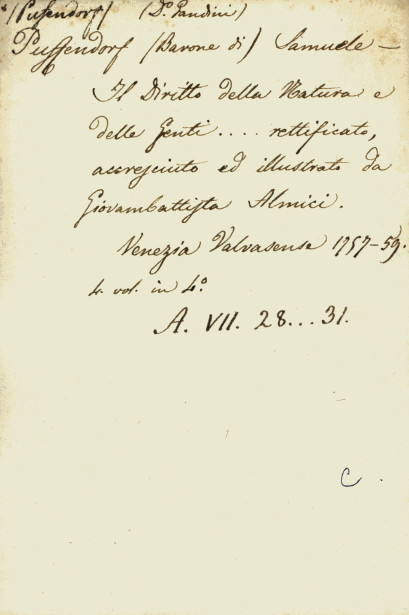 (Pufendorf) (Dr. Pandini)
Puffendorf (Barone di) Samuele —
Il Diritto della Natura e
delle Genti .... rettificato,
accresciuto ed illustrato da
Giovambattista Almici.
Venezia Valvasense 1757-59.
4. vol. in 4.o
A. VII. 28...31.
C.